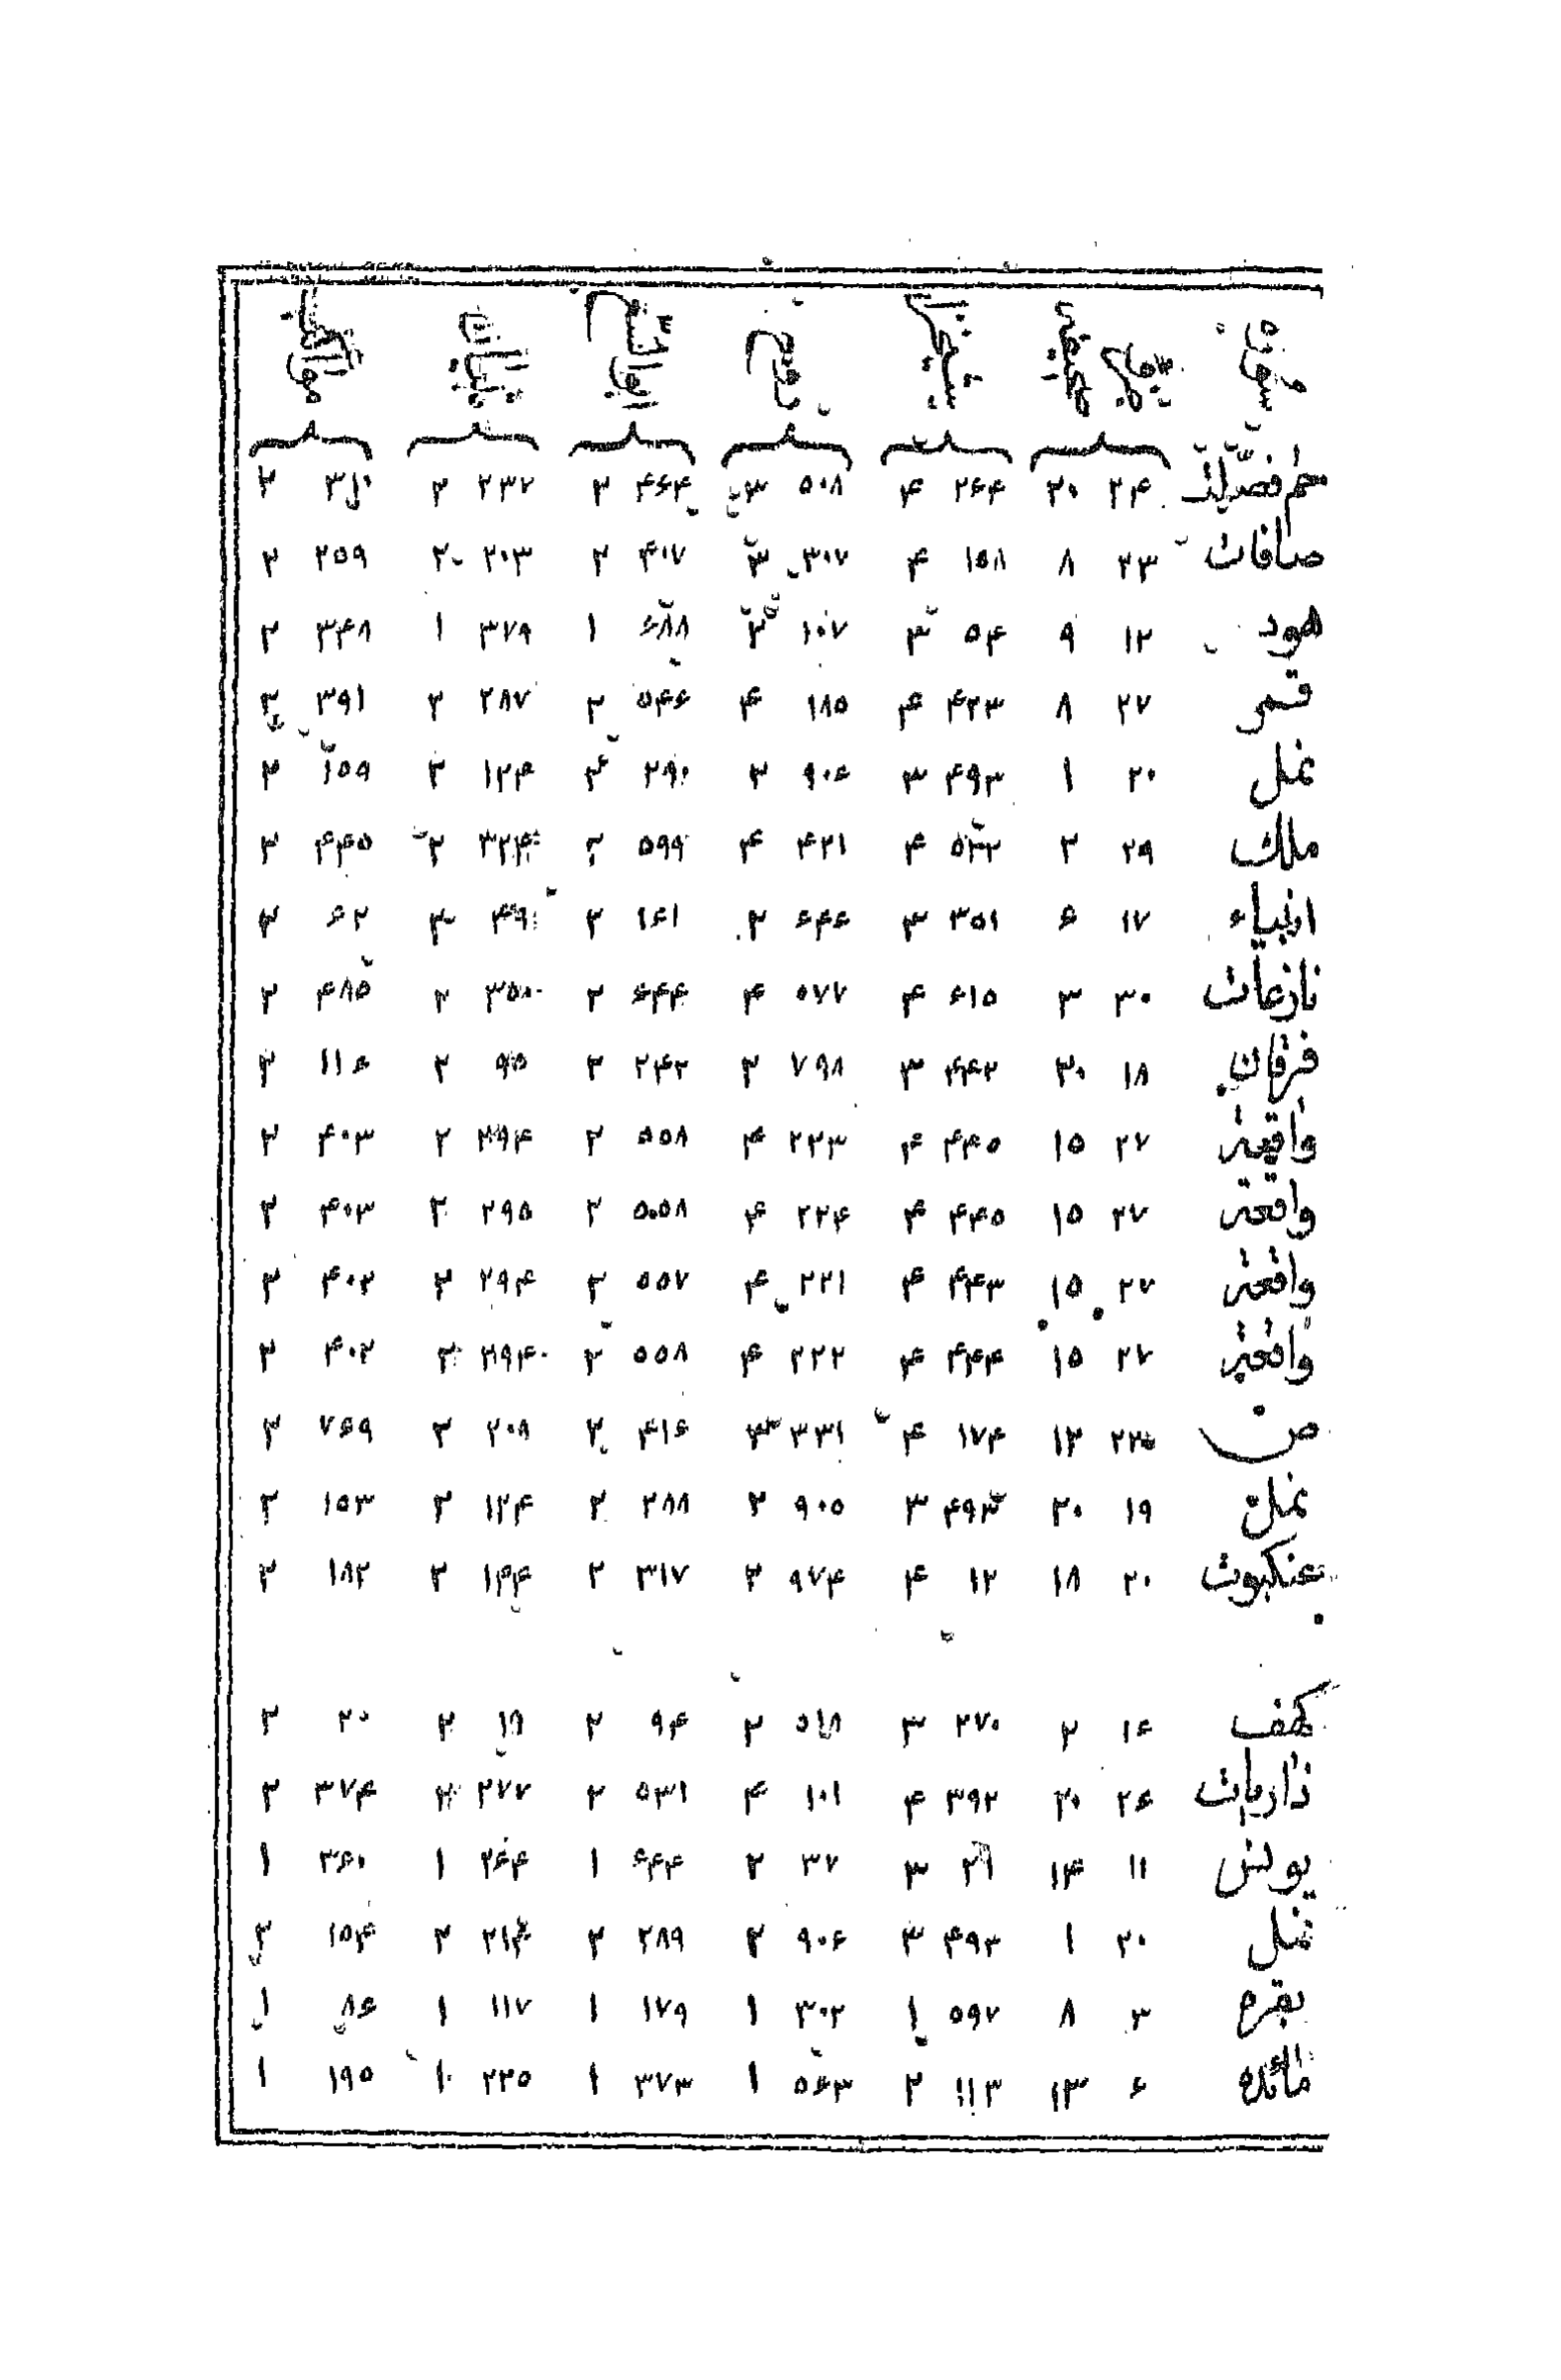 حم فصلت ۲۴ ۲۰ ۲۶۴ ۴ ۵۰۸ ۳ ۴۶۴ ۲ ۲۳۷ ۲ ۲
صافات ۲۳ ۸ ۱۵۸ ۴ ۳۰۷ ۳ ۴۰۷ ۲ ۲۰۳ ۲ ۲۵۹ ۲
هود ۱۲ ۹ ۵۴ ۳ ۱۰۷ ۶۸۸ ۱ ۳۷۹ ۱ ۳۴۸ ۲
قمر ۲۷ ۸ ۴۲۳ ۴ ۱۸۵ ۴ ۵۴۶ ۲ ۲۸۷ ۲ ۳۹۱ ۲
نمل ۲۰ ۱ ۴۹۳ ۳ ۹۰۶ ۲ ۲۹۰ ۲ ۱۲۴ ۲ ۱۵۹ ۲
ملك ۲۹ ۲ ۵۳۲ ۴ ۴۲۱ ۴ ۵۹۹ ۲ ۳۲۴ ۲ ۴۴۵ ۲
انبياء ۱۷ ۶ ۳۵۱ ۳ ۶۴۶ ۲ ۱۶۱ ۲ ۴۹ ۲ ۶۲ ۲
نازعات ۳۰ ۳ ۶۱۵ ۴ ۵۷۷ ۴ ۶۴۴ ۲ ۳۵۰ ۲ ۴۸۵ ۲
فرقان ۱۸ ۲۰ ۴۴۲ ۳ ۷۹۸ ۲ ۲۴۲ ۲ ۹۵ ۲ ۱۱۶ ۲
واقعة ۲۷ ۱۵ ۴۴۵ ۴ ۲۲۳ ۴ ۵۵۸ ۲ ۲۹۴ ۲ ۴۰۳ ۲
واقعة ۲۷ ۱۵ ۴۴۵ ۴ ۲۲۴ ۴ ۵۵۸ ۲ ۲۹۵ ۲ ۴۰۳ ۲
واقعة ۲۷ ۱۵ ۴۴۳ ۴ ۲۲۱ ۴ ۵۵۷ ۲ ۲۹۴ ۲ ۴۰۲ ۲
واقعة ۲۷ ۱۵ ۴۴۴ ۴ ۲۲۲ ۴ ۵۵۸ ۲ ۲۹۴ ۲ ۴۰۲ ۲
ص ۱۲ ۱۷۴ ۴ ۳۳۱ ۴۱۶ ۲ ۲۰۸ ۲ ۷۶۹ ۲
نمل ۱۹ ۲۰ ۴۹۳ ۳ ۹۰۵ ۲ ۲۸۸ ۲ ۱۲۴ ۲ ۱۵۳ ۲
عنكبوت ۲۰ ۱۸ ۱۲ ۴ ۹۷۴ ۲ ۳۱۷ ۲ ۱۴۴ ۲ ۱۸۲ ۲
كهف ۱۶ ۲ ۲۷۰ ۳ ۵۱۸ ۲ ۹۴ ۲ ۲ ۲۰ ۲
ذاريات ۲۶ ۲۰ ۳۹۲ ۴ ۱۰۱ ۴ ۵۳۱ ۲ ۲۷۷ ۲ ۳۷۴ ۲
يونس ۱۱ ۱۴ ۳ ۳۷ ۲ ۶۴۴ ۱ ۲۶۴ ۱ ۳۶۰ ۱
نمل ۲۰ ۱ ۴۹۳ ۳ ۹۰۶ ۲ ۲۸۹ ۲ ۲۱۴ ۲ ۱۵۴ ۲
بقره ۳ ۸ ۵۹۷ ۱ ۳۰۲ ۱ ۱۷۹ ۱ ۱۱۷ ۱ ۸۶ ۱
مائده ۶ ۱۳ ۱۱۳ ۲ ۵۶۳ ۱ ۳۷۳ ۱ ۲۳۵ ۱ ۱۹۵ ۱